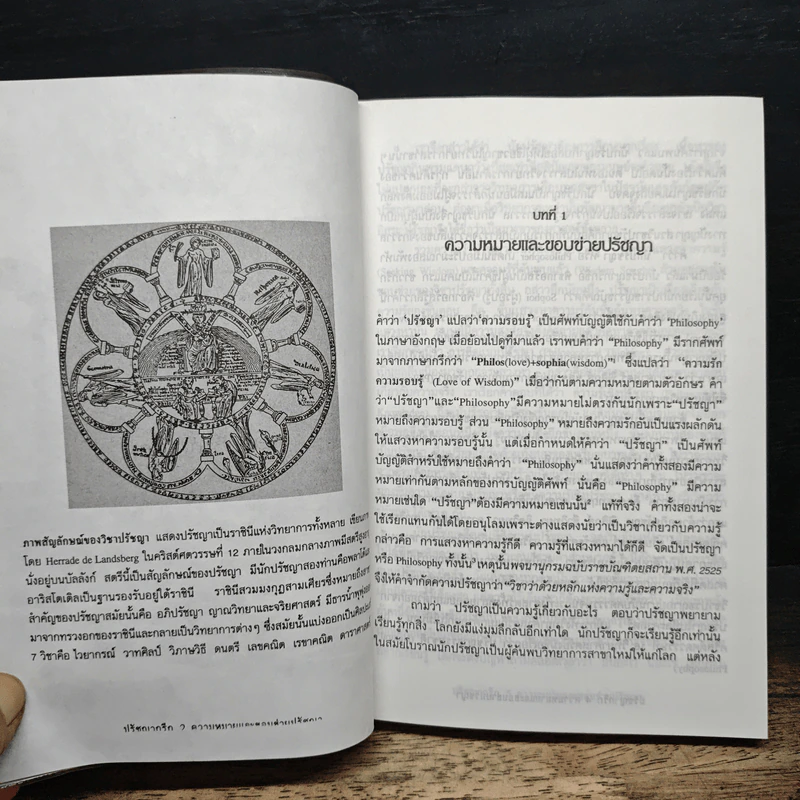 ภาพสัญลักษณ์ของวิชาปรัชญา แสดงปรัชญาเป็นราชินีแห่งวิทยาการทั้งหลาย เขียนภาพ
โดย Herrade de Landsberg ในคริสต์ศตวรรษที่ 12 ภายในวงกลมกลางภาพมีสตรีสูงอายุ
นั่งอยู่บนบัลลังก์ สตรีนี้เป็นสัญลักษณ์ของปรัชญา มีนักปรัชญาสองท่านคือพลาโต้และ
อาริสโตเติลเป็นฐานรองรับอยู่ใต้ราชินี ราชินีสวมมงกุฎสามเศียรซึ่งหมายถึงสาขา
สำคัญของปรัชญาสมัยนั้นคือ อภิปรัชญา ญาณวิทยาและจริยศาสตร์ มีธารน้ำพุพุ่งออก
มาจากทรวงอกของราชินีและกลายเป็นวิทยาการต่างๆ ซึ่งสมัยนั้นแบ่งออกเป็นศิลปะ
7 วิชาคือ ไวยากรณ์ วาทศิลป์ วิภาษวิธี ดนตรี เลขคณิต เรขาคณิต ดาราศาสตร์
ปรัชญากรีก 2 ความหมายและขอบข่ายปรัชญา
บทที่ 1
ความหมายและขอบข่ายปรัชญา
คำว่า 'ปรัชญา' แปลว่า'ความรอบรู้' เป็นศัพท์บัญญัติใช้กับคำว่า 'Philosophy'
ในภาษาอังกฤษ เมื่อย้อนไปดูที่มาแล้ว เราพบคำว่า "Philosophy" มีรากศัพท์
มาจากภาษากรีกว่า "Philos(love)+sophia(wisdom)" ซึ่งแปลว่า "ความรัก
ความรอบรู้ (Love of Wisdom)" เมื่อว่ากันตามความหมายตามตัวอักษร คำ
ว่า"ปรัชญา"และ"Philosophy"มีความหมายไม่ตรงกันนักเพราะ"ปรัชญา"
หมายถึงความรอบรู้ ส่วน "Philosophy" หมายถึงความรักอันเป็นแรงผลักดัน
ให้แสวงหาความรอบรู้นั้น แต่เมื่อกำหนดให้คำว่า "ปรัชญา" เป็นศัพท์
บัญญัติสำหรับใช้หมายถึงคำว่า "Philosophy" นั่นแสดงว่าคำทั้งสองมีความ
หมายเท่ากันตามหลักของการบัญญัติศัพท์ นั่นคือ "Philosophy" มีความ
หมายเช่นใด "ปรัชญา"ต้องมีความหมายเช่นนั้น แท้ที่จริง คำทั้งสองน่าจะ
ใช้เรียกแทนกันได้โดยอนุโลมเพราะต่างแสดงนัยว่าเป็นวิชาเกี่ยวกับความรู้
กล่าวคือ การแสวงหาความรู้ก็ดี ความรู้ที่แสวงหามาได้ก็ดี จัดเป็นปรัชญา
หรือ Philosophy ทั้งนั้น เหตุนั้นพจนานุกรมฉบับราชบัณฑิตยสถาน พ.ศ. 2525
จึงให้คำจำกัดความปรัชญาว่า "วิชาว่าด้วยหลักแห่งความรู้และความจริง"
ถามว่า ปรัชญาเป็นความรู้เกี่ยวกับอะไร ตอบว่าปรัชญาพยายาม
เรียนรู้ทุกสิ่ง โลกยังมีแง่มุมลึกลับอีกเท่าใด นักปรัชญาก็จะเรียนรู้อีกเท่านั้น
ในสมัยโบราณนักปรัชญาเป็นผู้ค้นพบวิทยาการสาขาใหม่ให้แก่โลก แต่หลัง